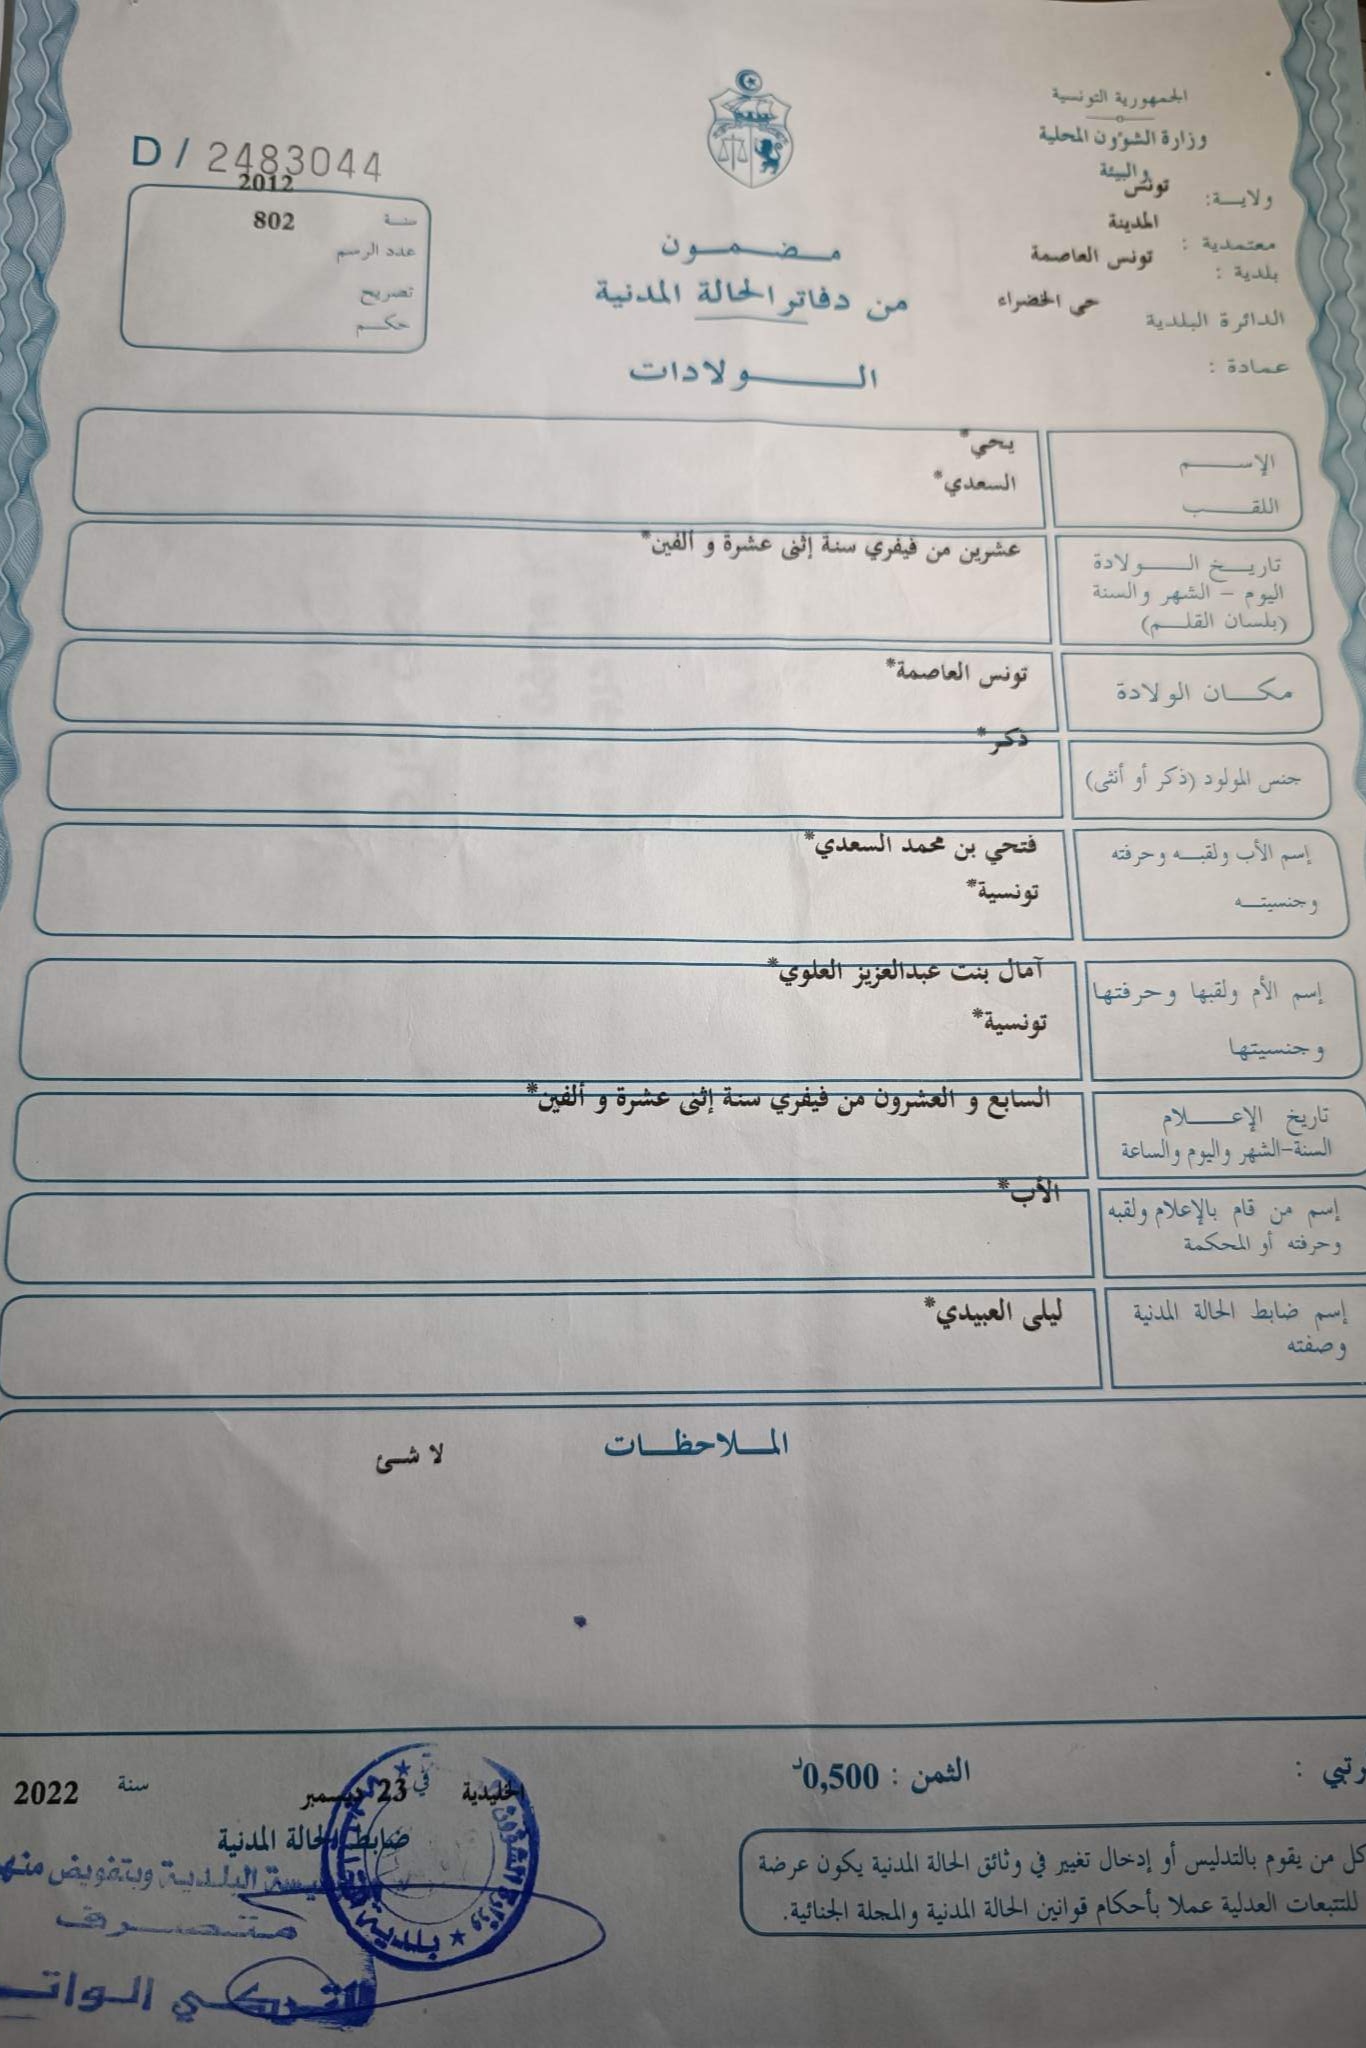 الجمهورية التونسية
وزارة الشؤون المحلية
والبيئة
ولاية: تونس
معتمدية : المدينة
بلدية : تونس العاصمة
الدائرة البلدية حي الخضراء
عمادة :
D / 2483044
2012
سنة 802
عدد الرسم
تصريح
حكم
مضمون
من دفاتر الحالة المدنية
الولادات
الإسم يحي*
اللقب السعدي*
تاريخ الولادة عشرين من فيفري سنة إثنى عشرة و ألفين*
اليوم - الشهر والسنة
(بلسان القلم)
مكان الولادة تونس العاصمة*
جنس المولود (ذكر أو أنثى) ذكر*
إسم الأب ولقبه وحرفته فتحي بن محمد السعدي*
وجنسيته تونسية*
إسم الأم ولقبها وحرفتها آمال بنت عبدالعزيز العلوي*
وجنسيتها تونسية*
تاريخ الإعلام السابع و العشرون من فيفري سنة إثنى عشرة و ألفين*
السنة-الشهر واليوم والساعة
إسم من قام بالإعلام ولقبه الأب*
وحرفته أو المحكمة
إسم ضابط الحالة المدنية ليلى العبيدي*
وصفته
الملاحظات
لا شئ
الثمن : 0,500د
الخليدية في 23 ديسمبر سنة 2022
ضابط الحالة المدنية
البلدية وبتفويض منها
متصرف
كل من يقوم بالتدليس أو إدخال تغيير في وثائق الحالة المدنية يكون عرضة
للتتبعات العدلية عملا بأحكام قوانين الحالة المدنية والمجلة الجنائية.